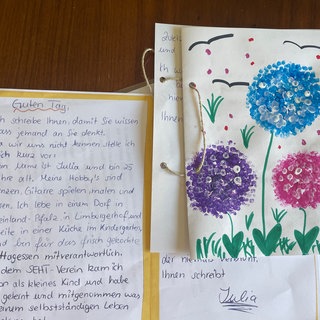 Guten Tag,
ich schreibe Ihnen, damit Sie wissen
dass jemand an Sie denkt.
Da wir uns nicht kennen stelle ich
mich kurz vor:
Name ist Julia und bin 25
Jahre alt. Meine Hobby's sind
Gitarre spielen, malen und
Ich lebe in einem Dorf in
Rheinland-Pfalz in Limburgerhof, und
in einer Küche im Kindergarten,
und bin für das frisch gekochte
Mittagessen mitverantwortlich.
dem SEHT-Verein kam ich
als kleines Kind und habe
gelernt und mitgenommen was
einem selbstständigen Leben
und
Ich w
hier
Ihnen
Ihnen schreibt
Julia